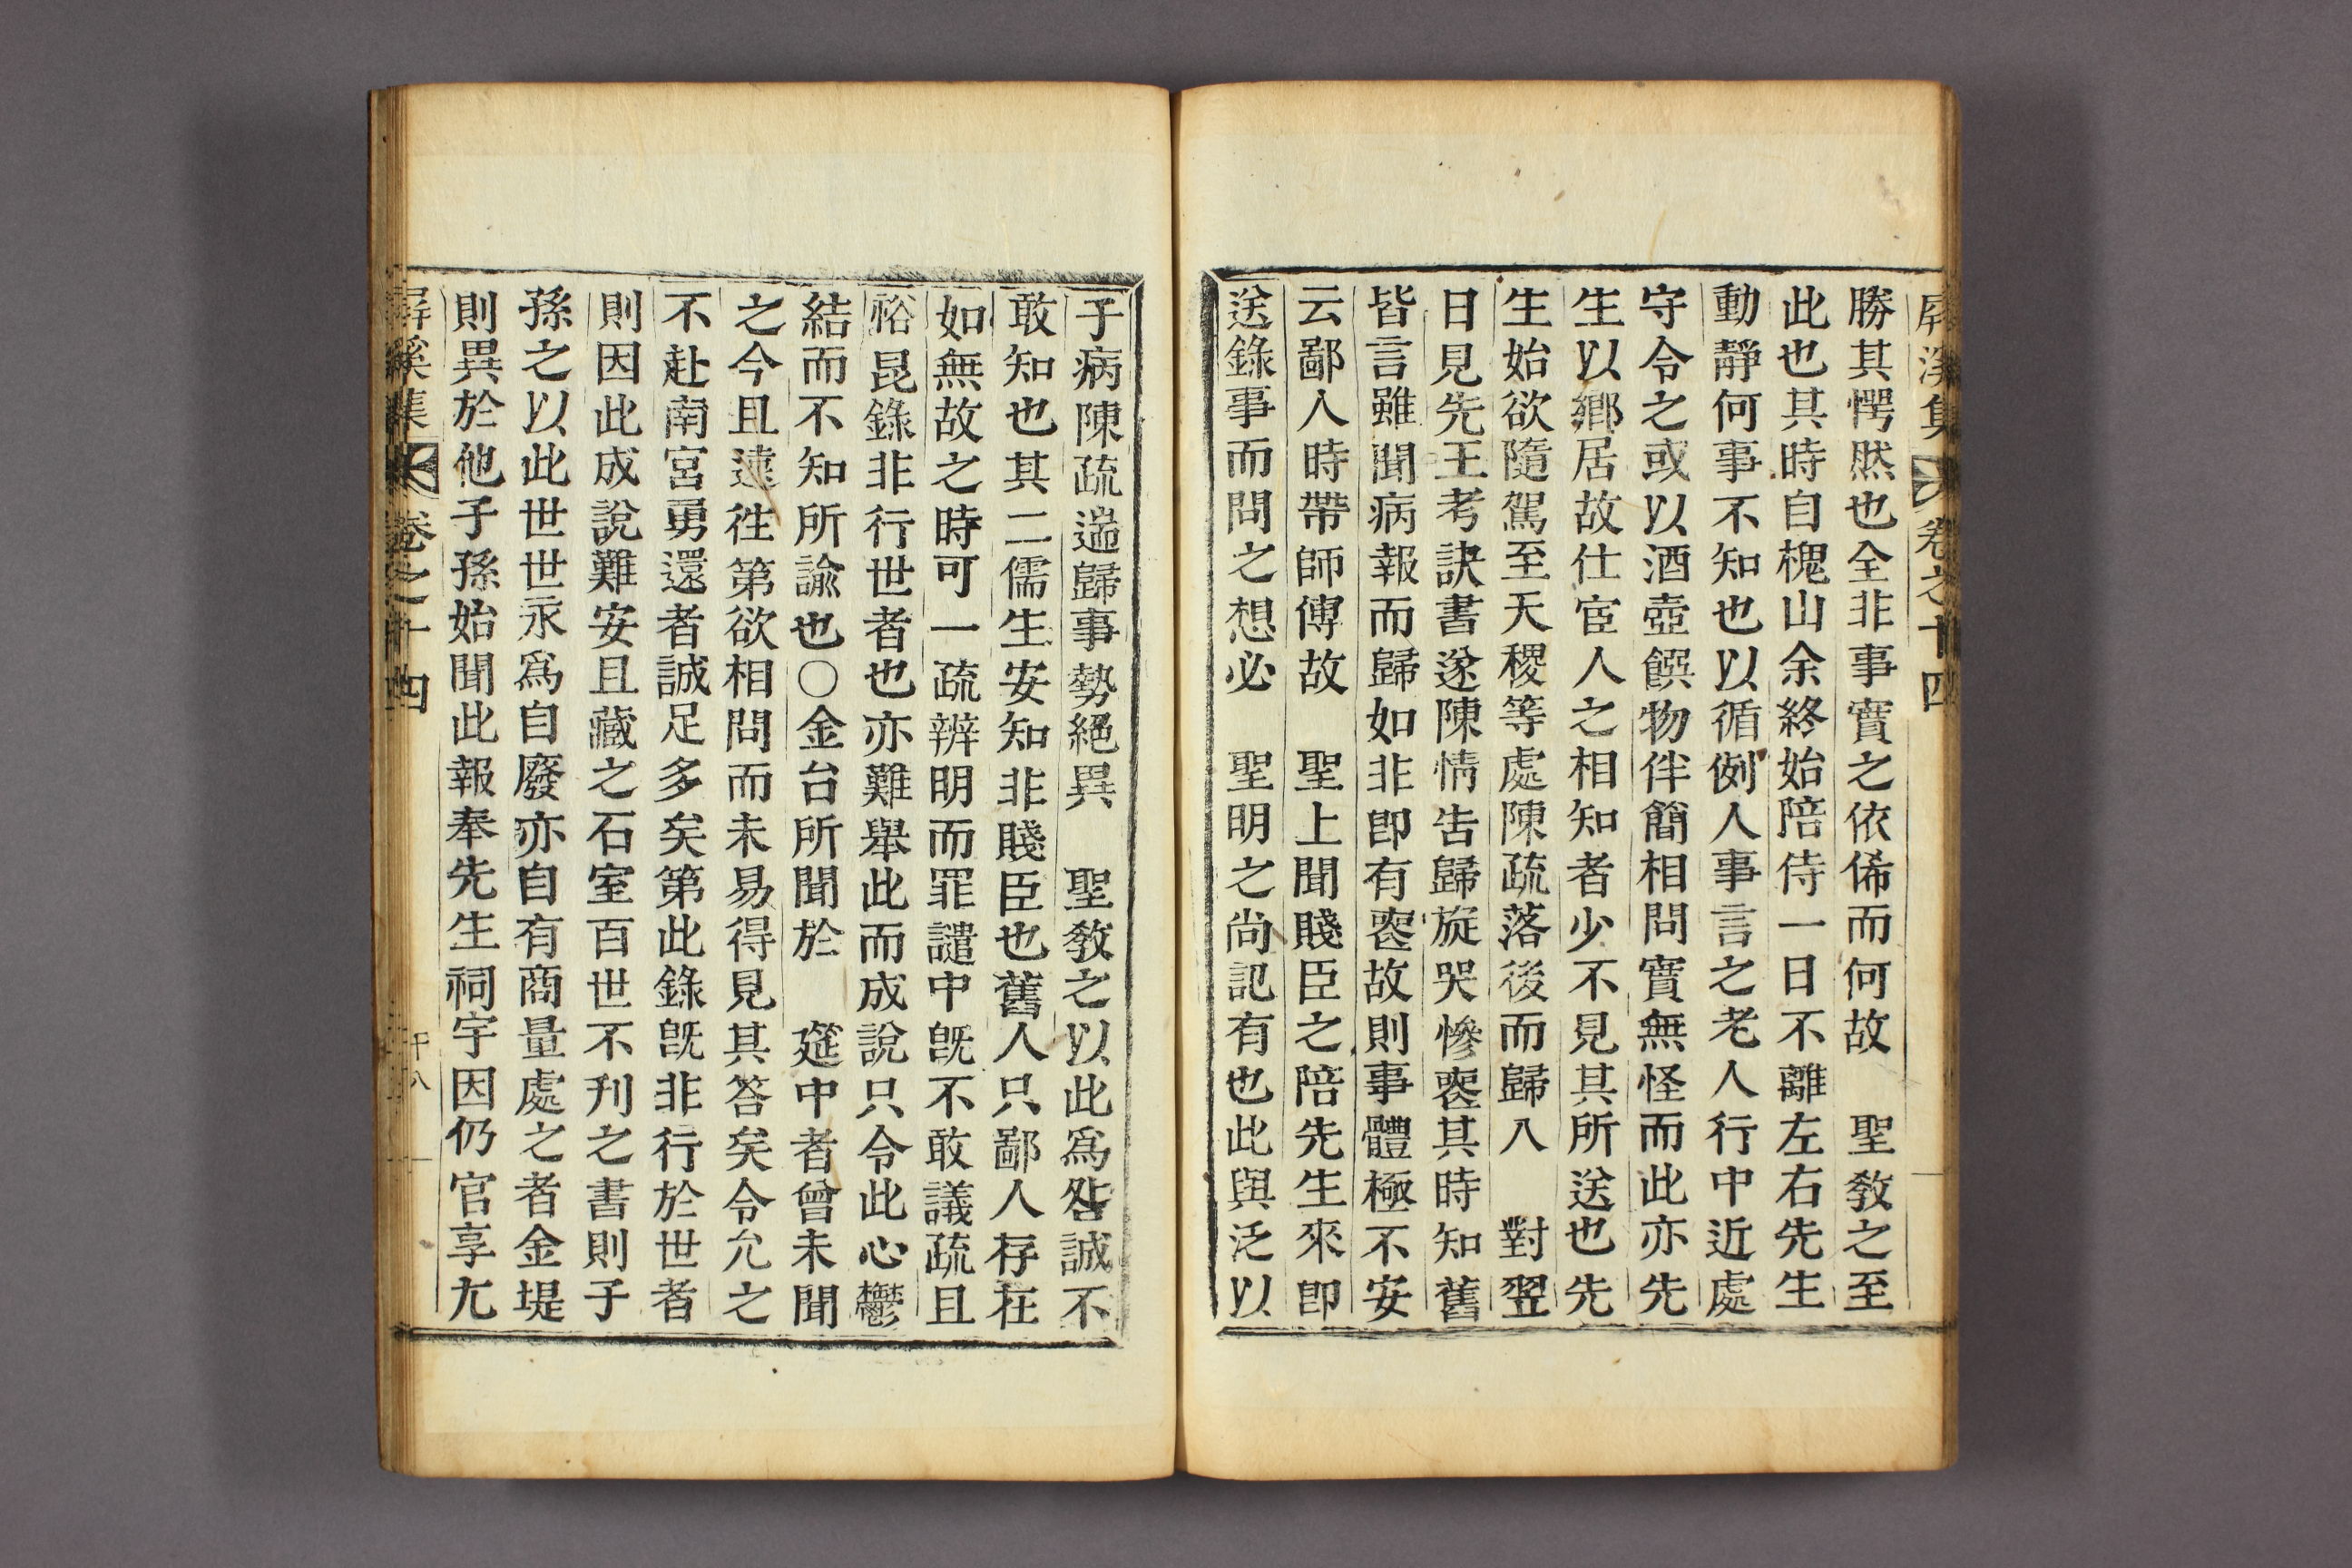 屛溪集 卷之十四
勝其愕然也全非事實之依俙而何故 聖敎之至
此也其時自槐山余終始陪侍一日不離左右先生
動靜何事不知也以循例人事言之老人行中近處
守令之或以酒壺饌物伴簡相問實無怪而此亦先
生以鄕居故仕宦人之相知者少不見其所送也先
生始欲隨駕至天稷等處陳疏落後而歸入 對翌
日見先王考訣書遂陳情告歸旋哭慘喪其時知舊
皆言雖聞病報而歸如非卽有喪故則事體極不安
云鄙人時帶師傅故 聖上聞賤臣之陪先生來卽
送錄事而問之想必 聖明之尙記有也此與泛以
子病陳疏遄歸事勢絕異 聖敎之以此爲咎誠不
敢知也其二儒生安知非賤臣也舊人只鄙人存在
如無故之時可一疏辨明而罪譴中旣不敢議疏且
裕昆錄非行世者也亦難舉此而成說只令此心鬱
結而不知所諭也○金台所聞於 筵中者曾未聞
之今且遠徃第欲相問而未易得見其答矣令允之
不赴南宮勇還者誠足多矣第此錄旣非行於世者
則因此成說難安且藏之石室百世不刊之書則子
孫之以此世世永爲自廢亦自有商量處之者金堤
則異於他子孫始聞此報奉先生祠宇因仍官享尢
屛溪集 卷之十四 十八